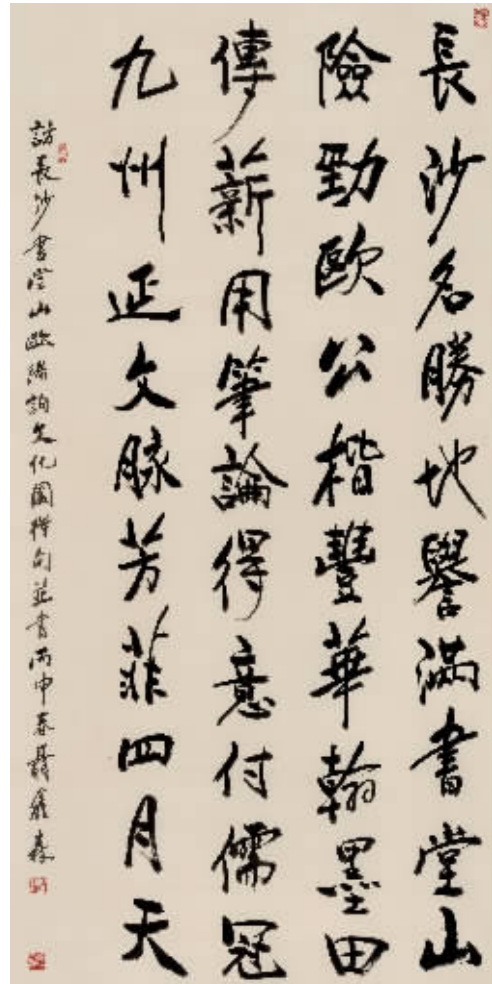 長沙名勝地譽滿書堂山
險勁歐公楷豐華翰墨田
傳薪用筆論得意付儒冠
九州延文脉芳菲四月天
訪長沙書堂山歐陽詢文化園得句並書丙申春